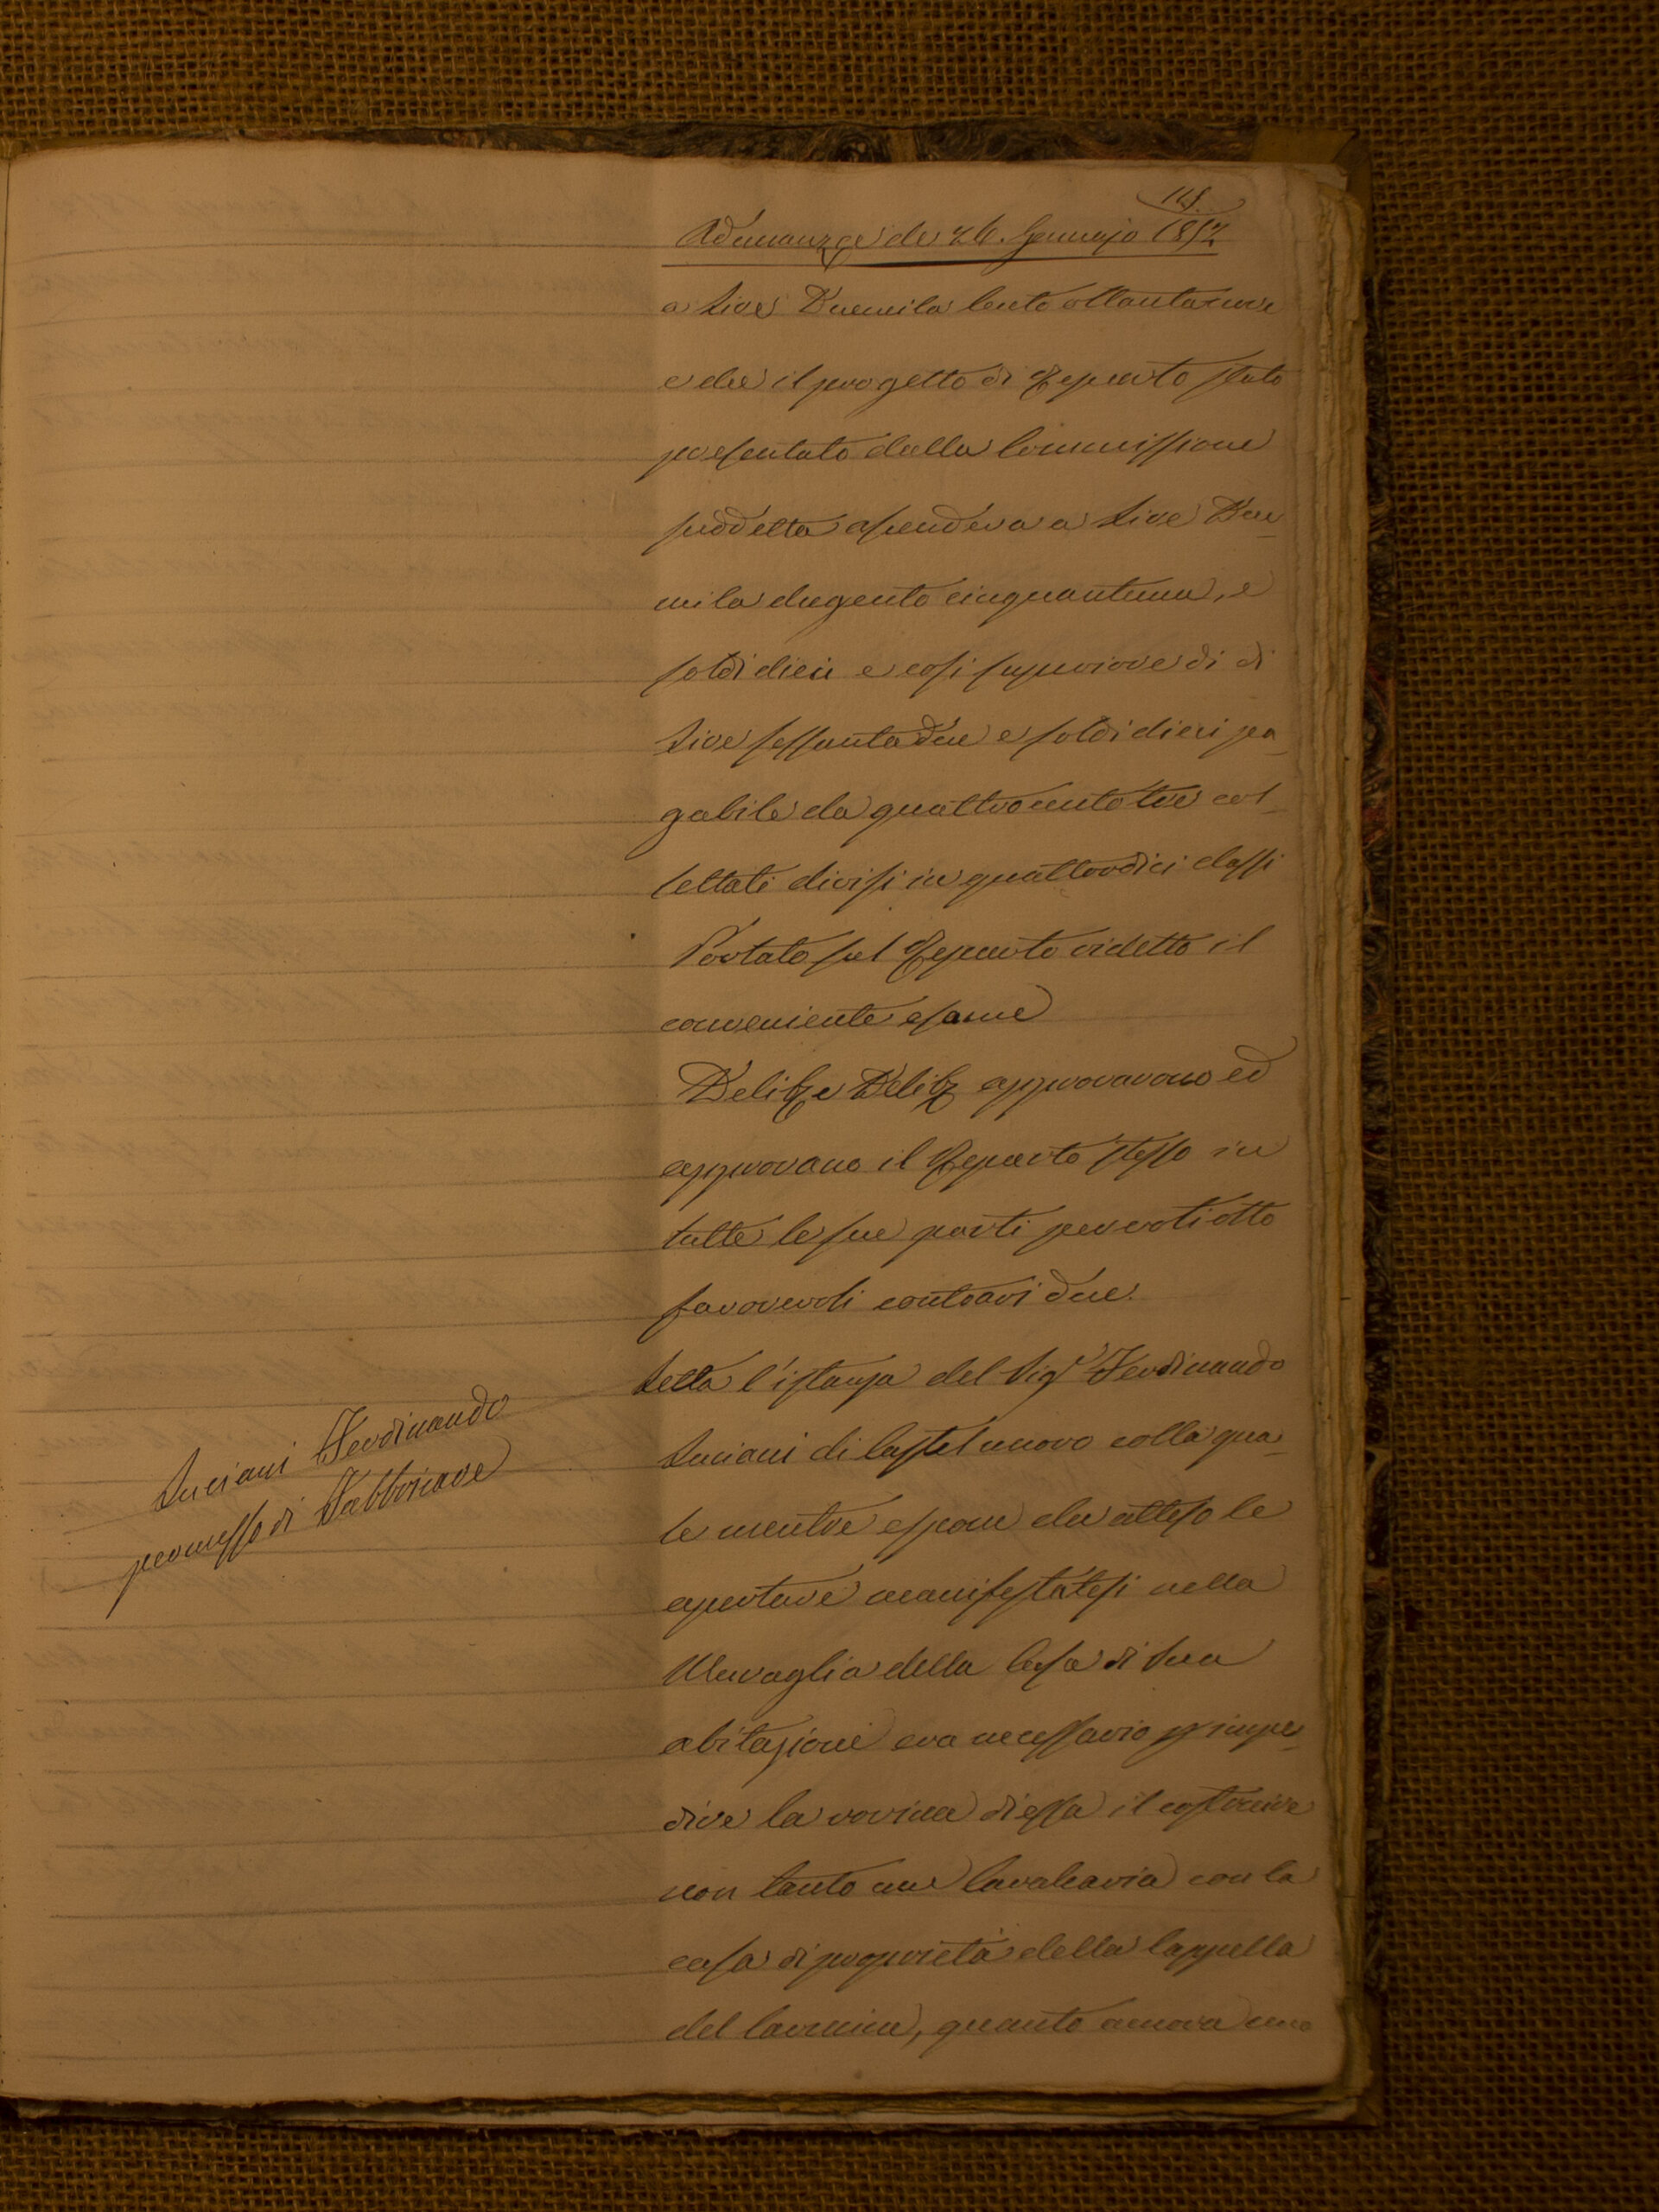 118.
Adunanza de 26. Gennajo 1852
a Lire Duemila Cento ottantanove
e che il progetto di Reparto stato
presentato dalla Commissione
suddetta ascendeva a Lire Due
mila dugento cinquantuna, e
soldi dieci e così superiore di di
Lire sessantadue e soldi dieci pa
gabile da quattrocento tre col
lettati divisi in quattordici classi
Portato sul Reparto ridetto il
conveniente esame
Delib.e Delib. approvarono ed
approvano il Reparto stesso in
tutte le sue parti per voti otto
favorevoli contrari due.
Letta l'istanza del Sigr. Ferdinando
Luciani di Castelnuovo colla qua
le mentre espone che atteso le
aperture manifestatesi nella
Muraglia della Casa di sua
abitazione era necessario p impe
dire la rovina di essa il costruire
non tanto una Cavalcavia con la
casa di proprietà della Cappella
del Carmine, quanto ancora uno
Luciani Ferdinando
permesso di Fabbricare